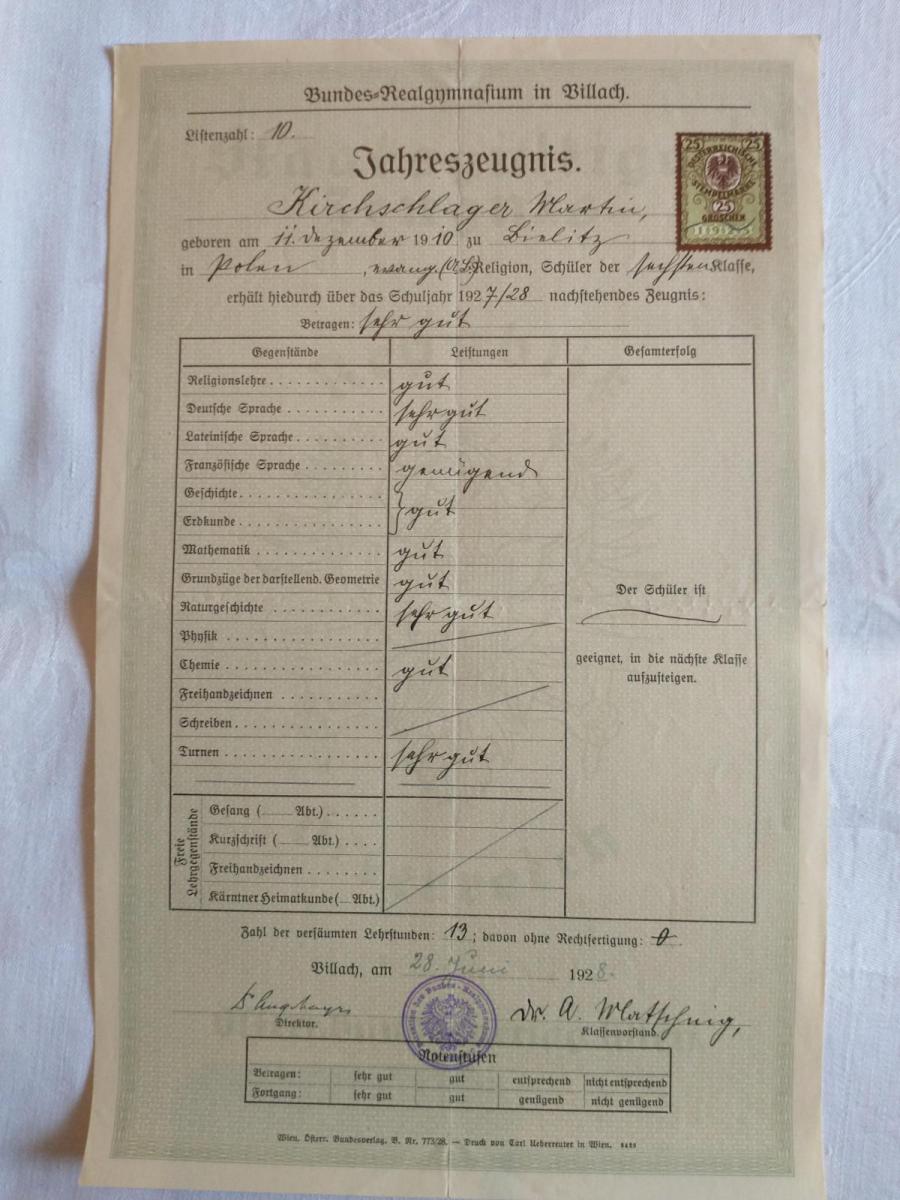 Bundes-Realgymnasium in Villach.
Listenzahl: 10.
Jahreszeugnis.
25 25
ÖSTERREICHISCHE
STEMPELMARKE
25
GROSCHEN
Kirchschlager Martin,
geboren am 11. Dezember 1910 zu Bielitz
in Polen, evang. (A.B.) Religion, Schüler der sechsten Klasse,
erhält hiedurch über das Schuljahr 1927/28 nachstehendes Zeugnis:
Betragen: sehr gut
Gegenstände Leistungen Gesamterfolg
Religionslehre gut
Deutsche Sprache sehr gut
Lateinische Sprache gut
Französische Sprache genügend
Geschichte
Erdkunde } gut
Mathematik gut
Grundzüge der darstellend. Geometrie gut
Naturgeschichte sehr gut
Physik
Chemie gut
Freihandzeichnen
Schreiben
Turnen sehr gut
Der Schüler ist
geeignet, in die nächste Klasse
aufzusteigen.
Freie Lehrgegenstände
Gesang ( Abt.)
Kurzschrift ( Abt.)
Freihandzeichnen
Kärntner Heimatkunde ( Abt.)
Zahl der versäumten Lehrstunden: 13; davon ohne Rechtfertigung: 0.
Villach, am 28. Juni 1928.
Direktor.
Dr. A. Matschnig,
Klassenvorstand.
Notenstufen
Betragen: sehr gut gut entsprechend nicht entsprechend
Fortgang: sehr gut gut genügend nicht genügend
Wien. Österr. Bundesverlag. B. Nr. 773/28. — Druck von Carl Ueberreuter in Wien.